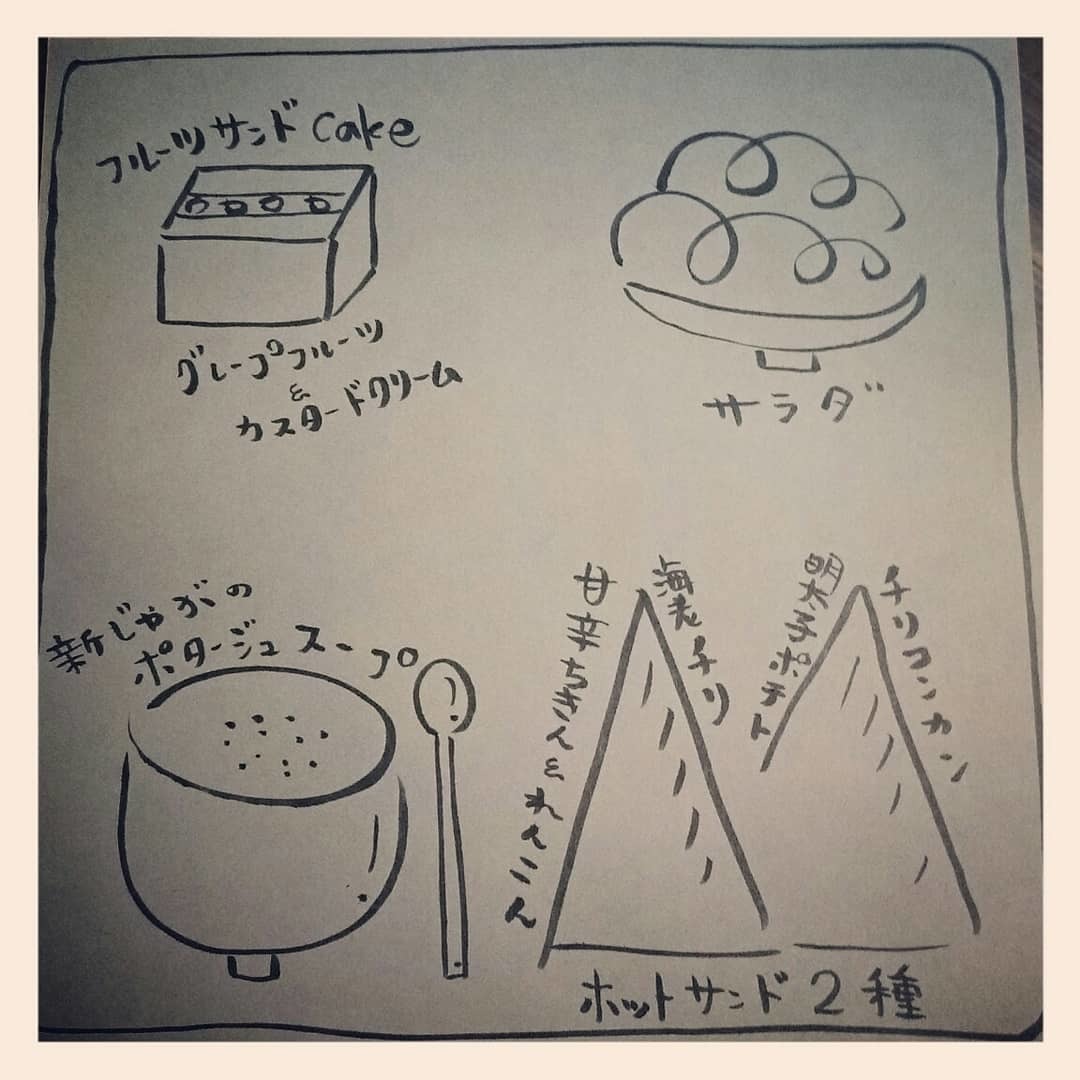 フルーツサンドCake
グレープフルーツ
&
カスタードクリーム
サラダ
新じゃがの
ポタージュスープ
甘辛ちきん&れんこん
海老チリ
明太子ポテト
チリコンカン
ホットサンド2種